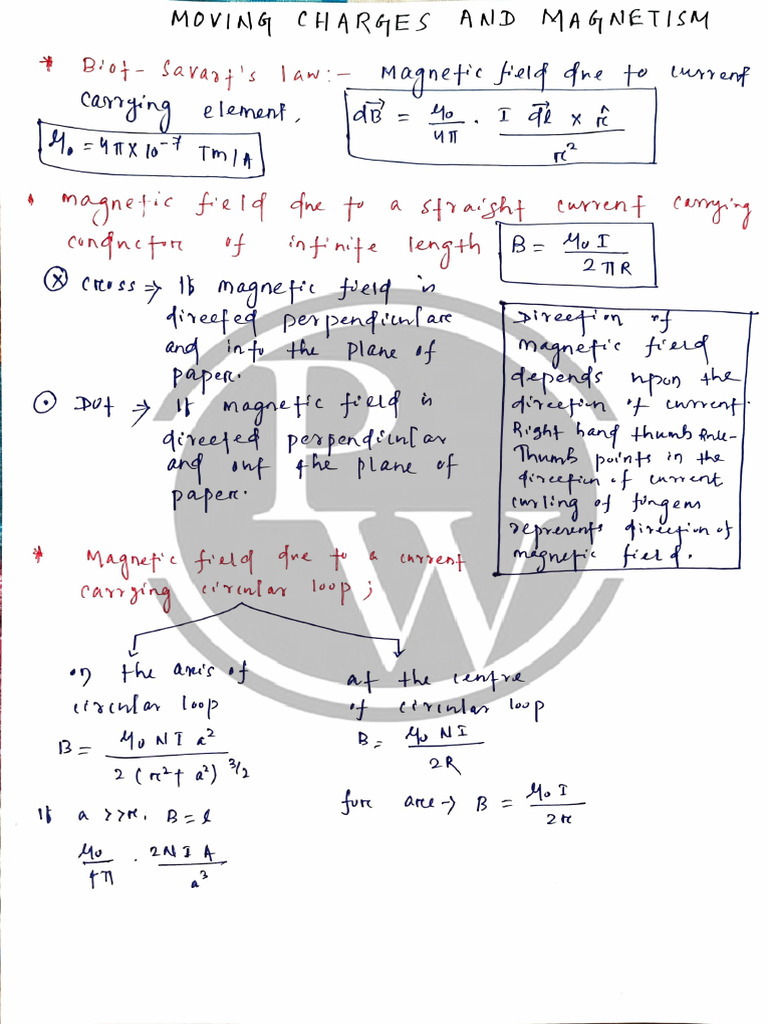 MOVING CHARGES AND MAGNETISM
* Biot-Savart's law:- Magnetic field due to current
carrying element,
dB⃗ = μ₀/4π . I dl⃗ × r̂/r²
μ₀ = 4π×10⁻⁷ Tm/A
• magnetic field due to a straight current carrying
conductor of infinite length
B = μ₀I/2πR
⊗ cross ⇒ If magnetic field is
directed perpendicular
and into the plane of
paper.
⊙ Dot ⇒ If magnetic field is
directed perpendicular
and out the plane of
paper.
Direction of
magnetic field
depends upon the
direction of current.
Right hand thumb Rule-
Thumb points in the
direction of current
curling of fingers
represents direction of
magnetic field.
* Magnetic field due to a current
carrying circular loop;
on the axis of
circular loop
B = μ₀NIa²/2(r²+a²)^3/2
If a >>r. B = l
μ₀/4π . 2NIA/a³
at the centre
of circular loop
B = μ₀NI/2R
for arc → B = μ₀I/2r
PW